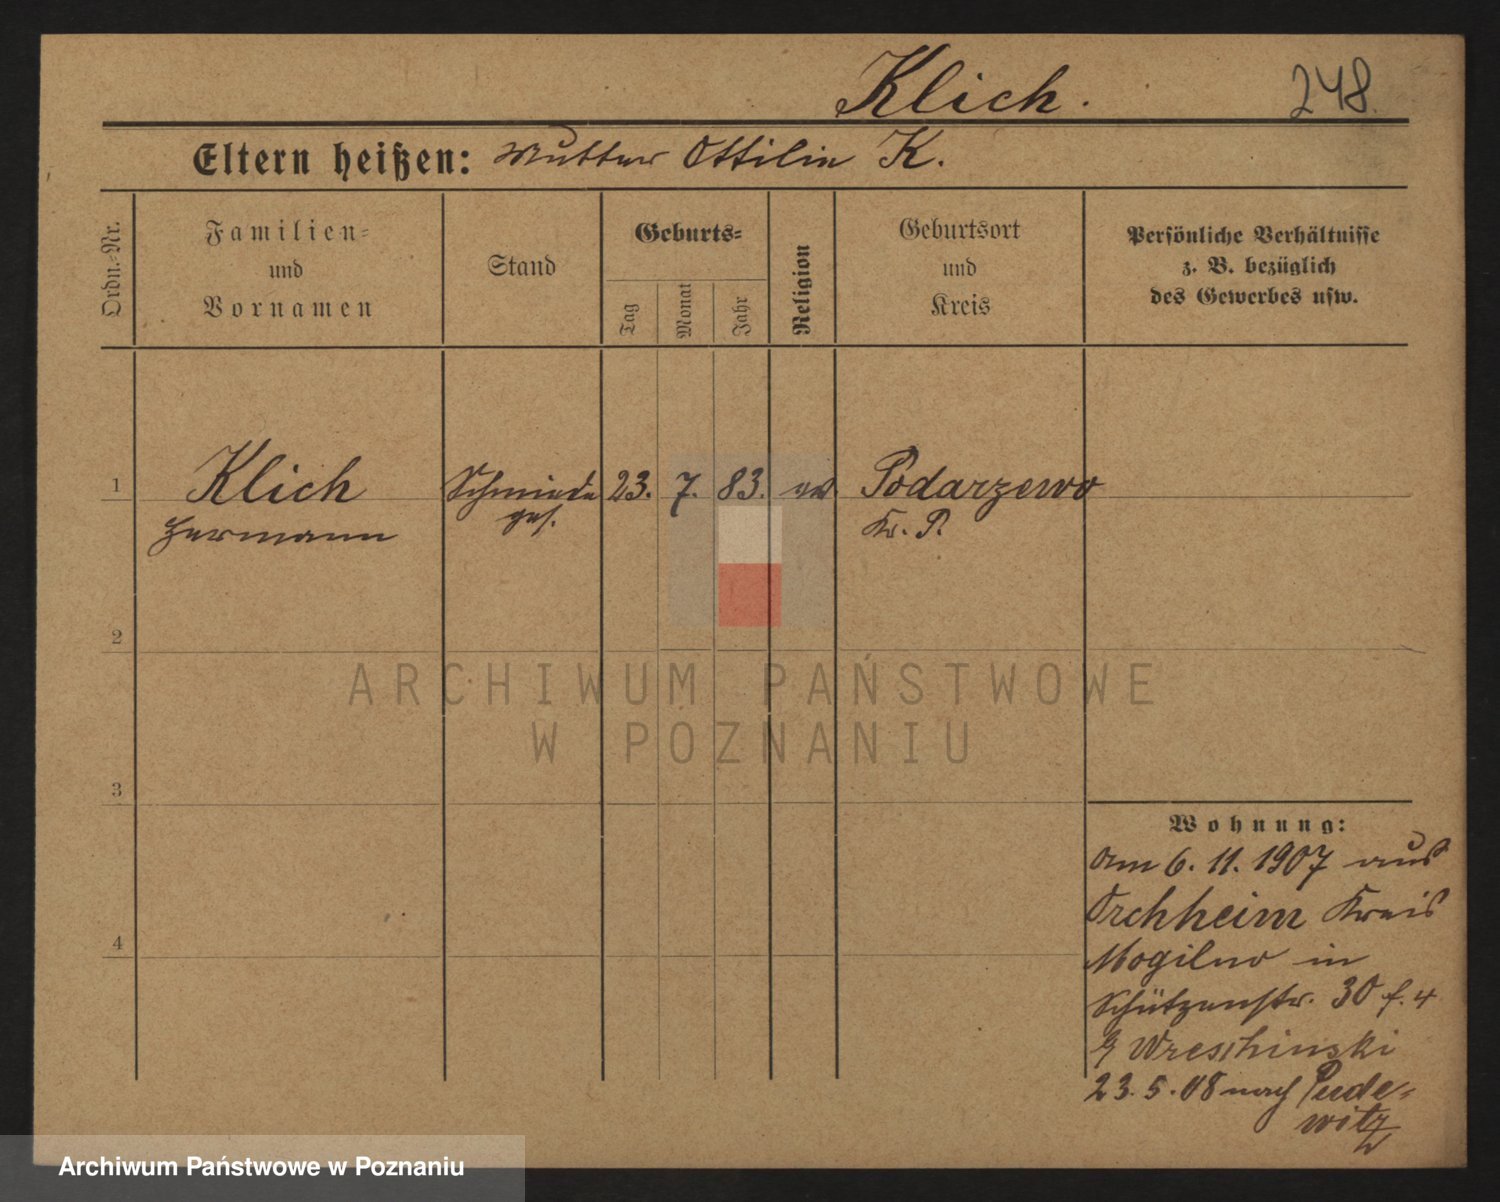 Klich.
248.
Eltern heißen: Mutter Ottilie K.
Ordn.-Nr.
Familien-
und
Vornamen
Stand
Geburts-
Tag
Monat
Jahr
Religion
Geburtsort
und
Kreis
Persönliche Verhältnisse
z. B. bezüglich
des Gewerbes usw.
1
Klich Schmiede 23. 7. 83. ev. Podarzewo
Hermann ges. Kr. P.
2
ARCHIWUM PAŃSTWOWE
W POZNANIU
3
Wohnung:
am 6. 11. 1907 aus
Orchheim Kreis
4
Mogilno in
Schützenstr. 30
Wreschinski
23. 5. 08 nach Pude-
witz
Archiwum Państwowe w Poznaniu